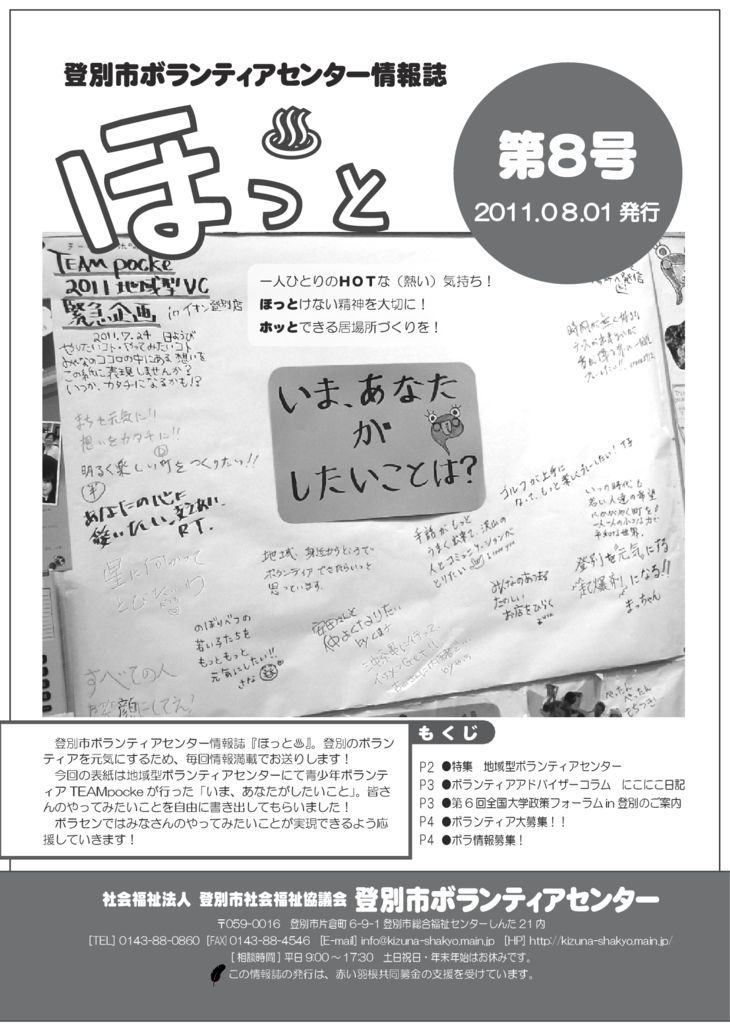 登別市ボランティアセンター情報誌
ほっと
第8号
2011.08.01 発行
TEAM pocke
2011 地域型VC
緊急企画 in イオン登別店
2011.7.24 日ようび
やりたいコト・やってみたいコト
みんなのココロの中にある想いを
この紙に表現しませんか?
いつか、カタチになるかも!?
一人ひとりのHOTな（熱い）気持ち！
ほっとけない精神を大切に！
ホッとできる居場所づくりを！
いま、あなた
が
したいことは?
まちを元気に!!
想いをカタチに!!
明るく楽しい町をつくりたい!!
あなたの心に
R.T.
星に向かって
地域、身近からというで
ボランティアできたらいっと
思っています。
手話がもっと
うまく出来て、沢山の
人とコミュニケーションが
とりたい
ゴルフが上手に
なって、もっと楽しくプレーしたい!
いつの時代も
若い人達の希望
にかがやく町を!
一人一人の小さな力で
平和な世界。
登別を"元気"にする
"起爆剤"になる!!
まっちゃん
みんなのあつまる
たのしい
お店をひらく
のぼりべつの
若い子たちを
もっともっと
元気にしたい!!
仲よくなりたい
すべての人
笑顔にしてえ!
ぺったん
ぺったん
もちつき!
登別市ボランティアセンター情報誌『ほっと♨』。登別のボラン
ティアを元気にするため、毎回情報満載でお送りします！
今回の表紙は地域型ボランティアセンターにて青少年ボランテ
ィア TEAMpocke が行った「いま、あなたがしたいこと」。皆さ
んのやってみたいことを自由に書き出してもらいました！
ボラセンではみなさんのやってみたいことが実現できるよう応
援していきます！
もくじ
P2 ●特集　地域型ボランティアセンター
P3 ●ボランティアアドバイザーコラム　にこにこ日記
P3 ●第6回全国大学政策フォーラム in 登別のご案内
P4 ●ボランティア大募集！！
P4 ●ボラ情報募集！
社会福祉法人 登別市社会福祉協議会 登別市ボランティアセンター
〒059-0016　登別市片倉町 6-9-1 登別市総合福祉センターしんた 21 内
[TEL] 0143-88-0860 [FAX] 0143-88-4546 [E-mail] info@kizuna-shakyo.main.jp [HP] http://kizuna-shakyo.main.jp/
[ 相談時間 ] 平日 9:00 ～ 17:30　土日祝日・年末年始はお休みです。
この情報誌の発行は、赤い羽根共同募金の支援を受けています。